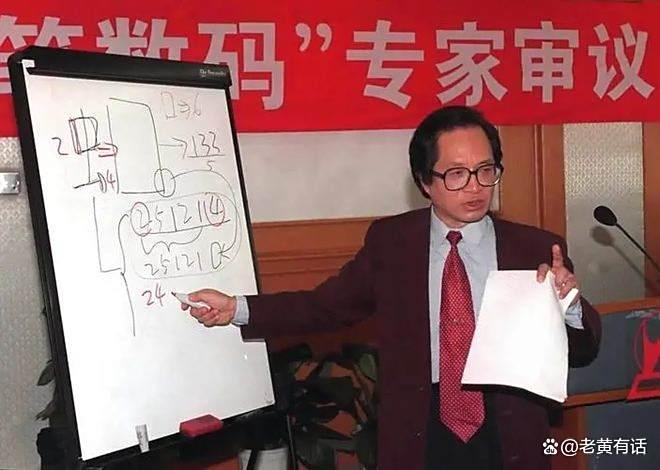 笔数码”专家审议
2
4
6
133
5
251211④
251211
24
@老黄有话